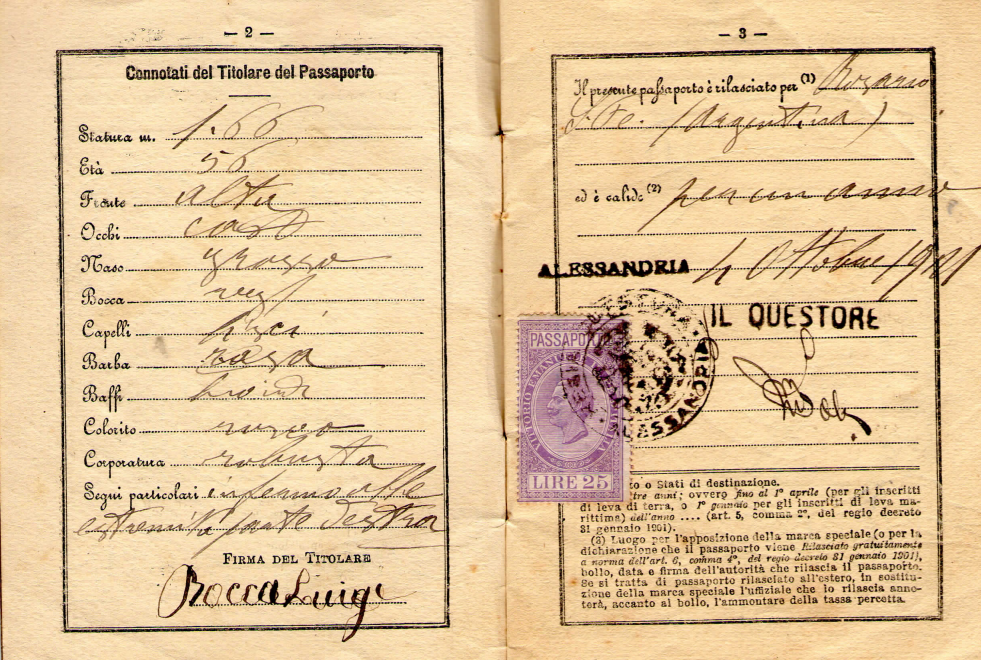 — 2 —
Connotati del Titolare del Passaporto
Statura m. 1.66
Età 56
Fronte alta
Occhi cast
Naso grosso
Bocca reg
Capelli
Barba rasa
Baffi
Colorito roseo
Corporatura robusta
Segni particolari
destra
FIRMA DEL TITOLARE
Rocca Luigi
— 3 —
Il presente passaporto è rilasciato per (1) Rosario
S. Fe. (Argentina)
ed è valido (2) per un anno
ALESSANDRIA 4 Ottobre
IL QUESTORE
PASSAPORTO
VITTORIO EMANUELE
LIRE 25
QUESTURA
ALESSANDRIA
to o Stati di destinazione.
tre anni; ovvero fino al 1º aprile (per gli inscritti
di leva di terra, o 1º gennaio per gli inscritti di leva ma-
rittima) dell'anno .... (art. 5, comma 2º, del regio decreto
31 gennaio 1901).
(3) Luogo per l'apposizione della marca speciale (o per la
dichiarazione che il passaporto viene Rilasciato gratuitamente
a norma dell'art. 6, comma 4º, del regio decreto 31 gennaio 1901),
bollo, data e firma dell'autorità che rilascia il passaporto.
Se si tratta di passaporto rilasciato all'estero, in sostitu-
zione della marca speciale l'uffiziale che lo rilascia anno-
terà, accanto al bollo, l'ammontare della tassa percetta.